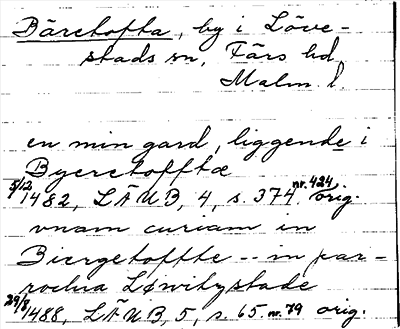 Bäretofta, by i Löve-
stads sn, Färs hd,
Malm. l.
en min gard, liggende i
Byeretofftæ
5/12 1482, LÄUB, 4, s. 374 nr. 424, orig.
vnam curiam in
Biergetoffte -- in par-
rochia Løwitzstade
29/8 1488, LÄUB, 5, s. 65. nr. 79 orig.